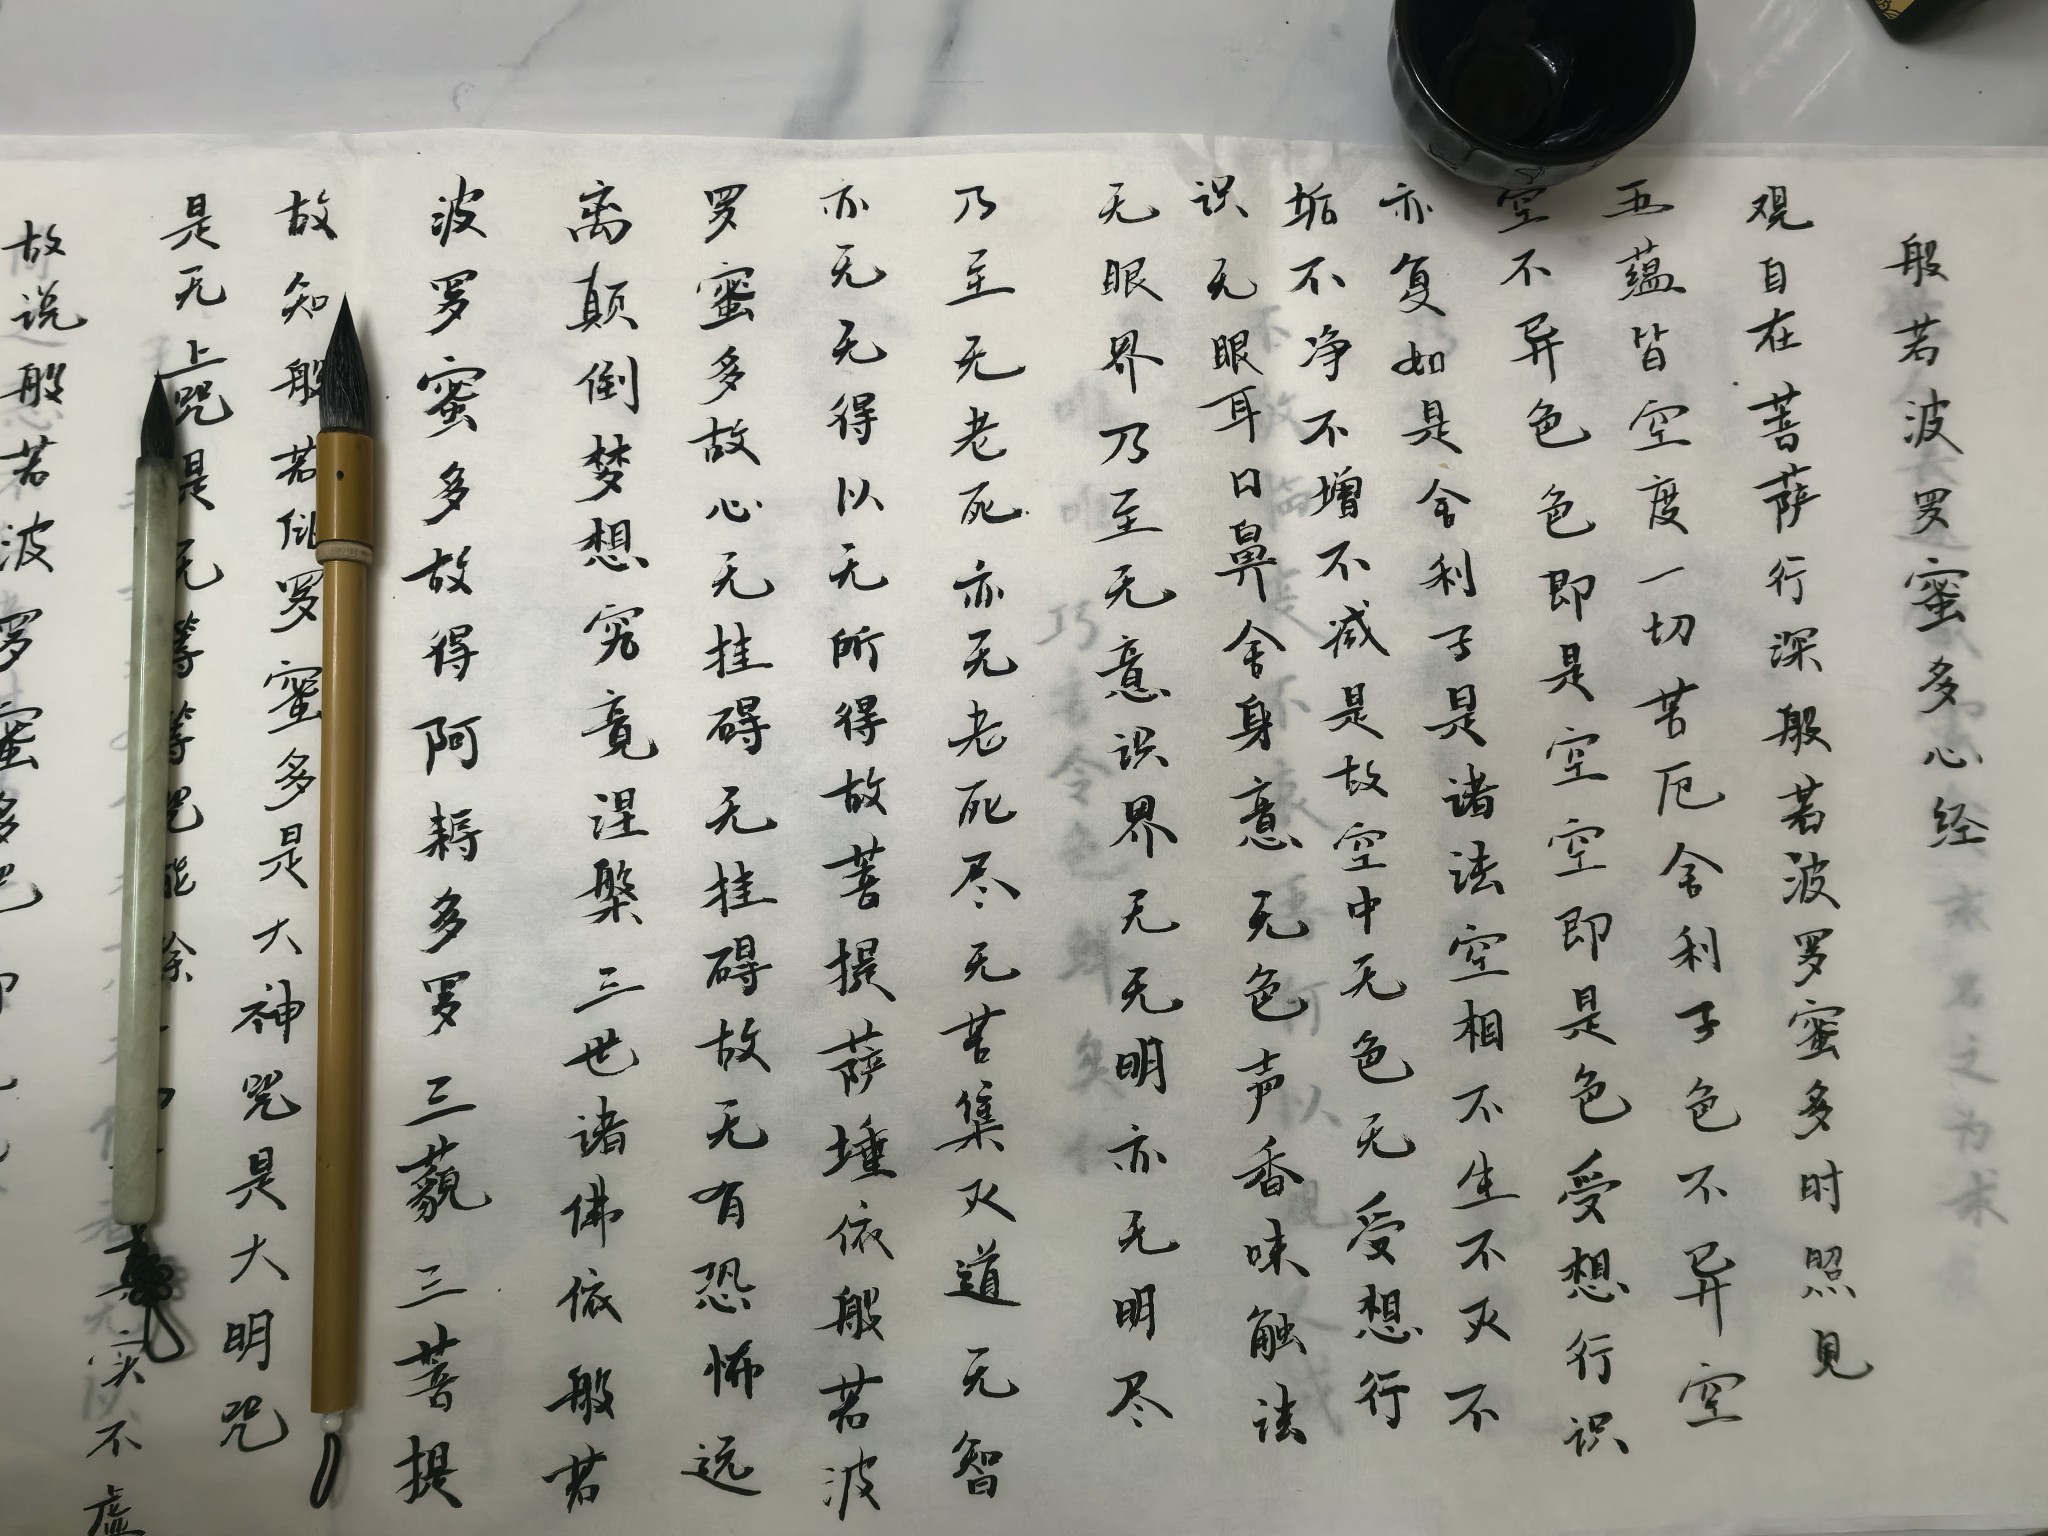 般若波罗蜜多心经
观自在菩萨行深般若波罗蜜多时照见
五蕴皆空度一切苦厄舍利子色不异空
空不异色色即是空空即是色受想行识
亦复如是舍利子是诸法空相不生不灭不
垢不净不增不减是故空中无色无受想行
识无眼耳口鼻舍身意无色声香味触法
无眼界乃至无意识界无无明亦无明尽
乃至无老死亦无老死尽无苦集灭道无智
亦无无得以无所得故菩提萨埵依般若波
罗蜜多故心无挂碍无挂碍故无有恐怖远
离颠倒梦想究竟涅槃三世诸佛依般若
波罗蜜多故得阿耨多罗三藐三菩提
故知般若罗蜜多是大神咒是大明咒
是无上咒是无等等咒能除
实不虚
故说般若波罗蜜多